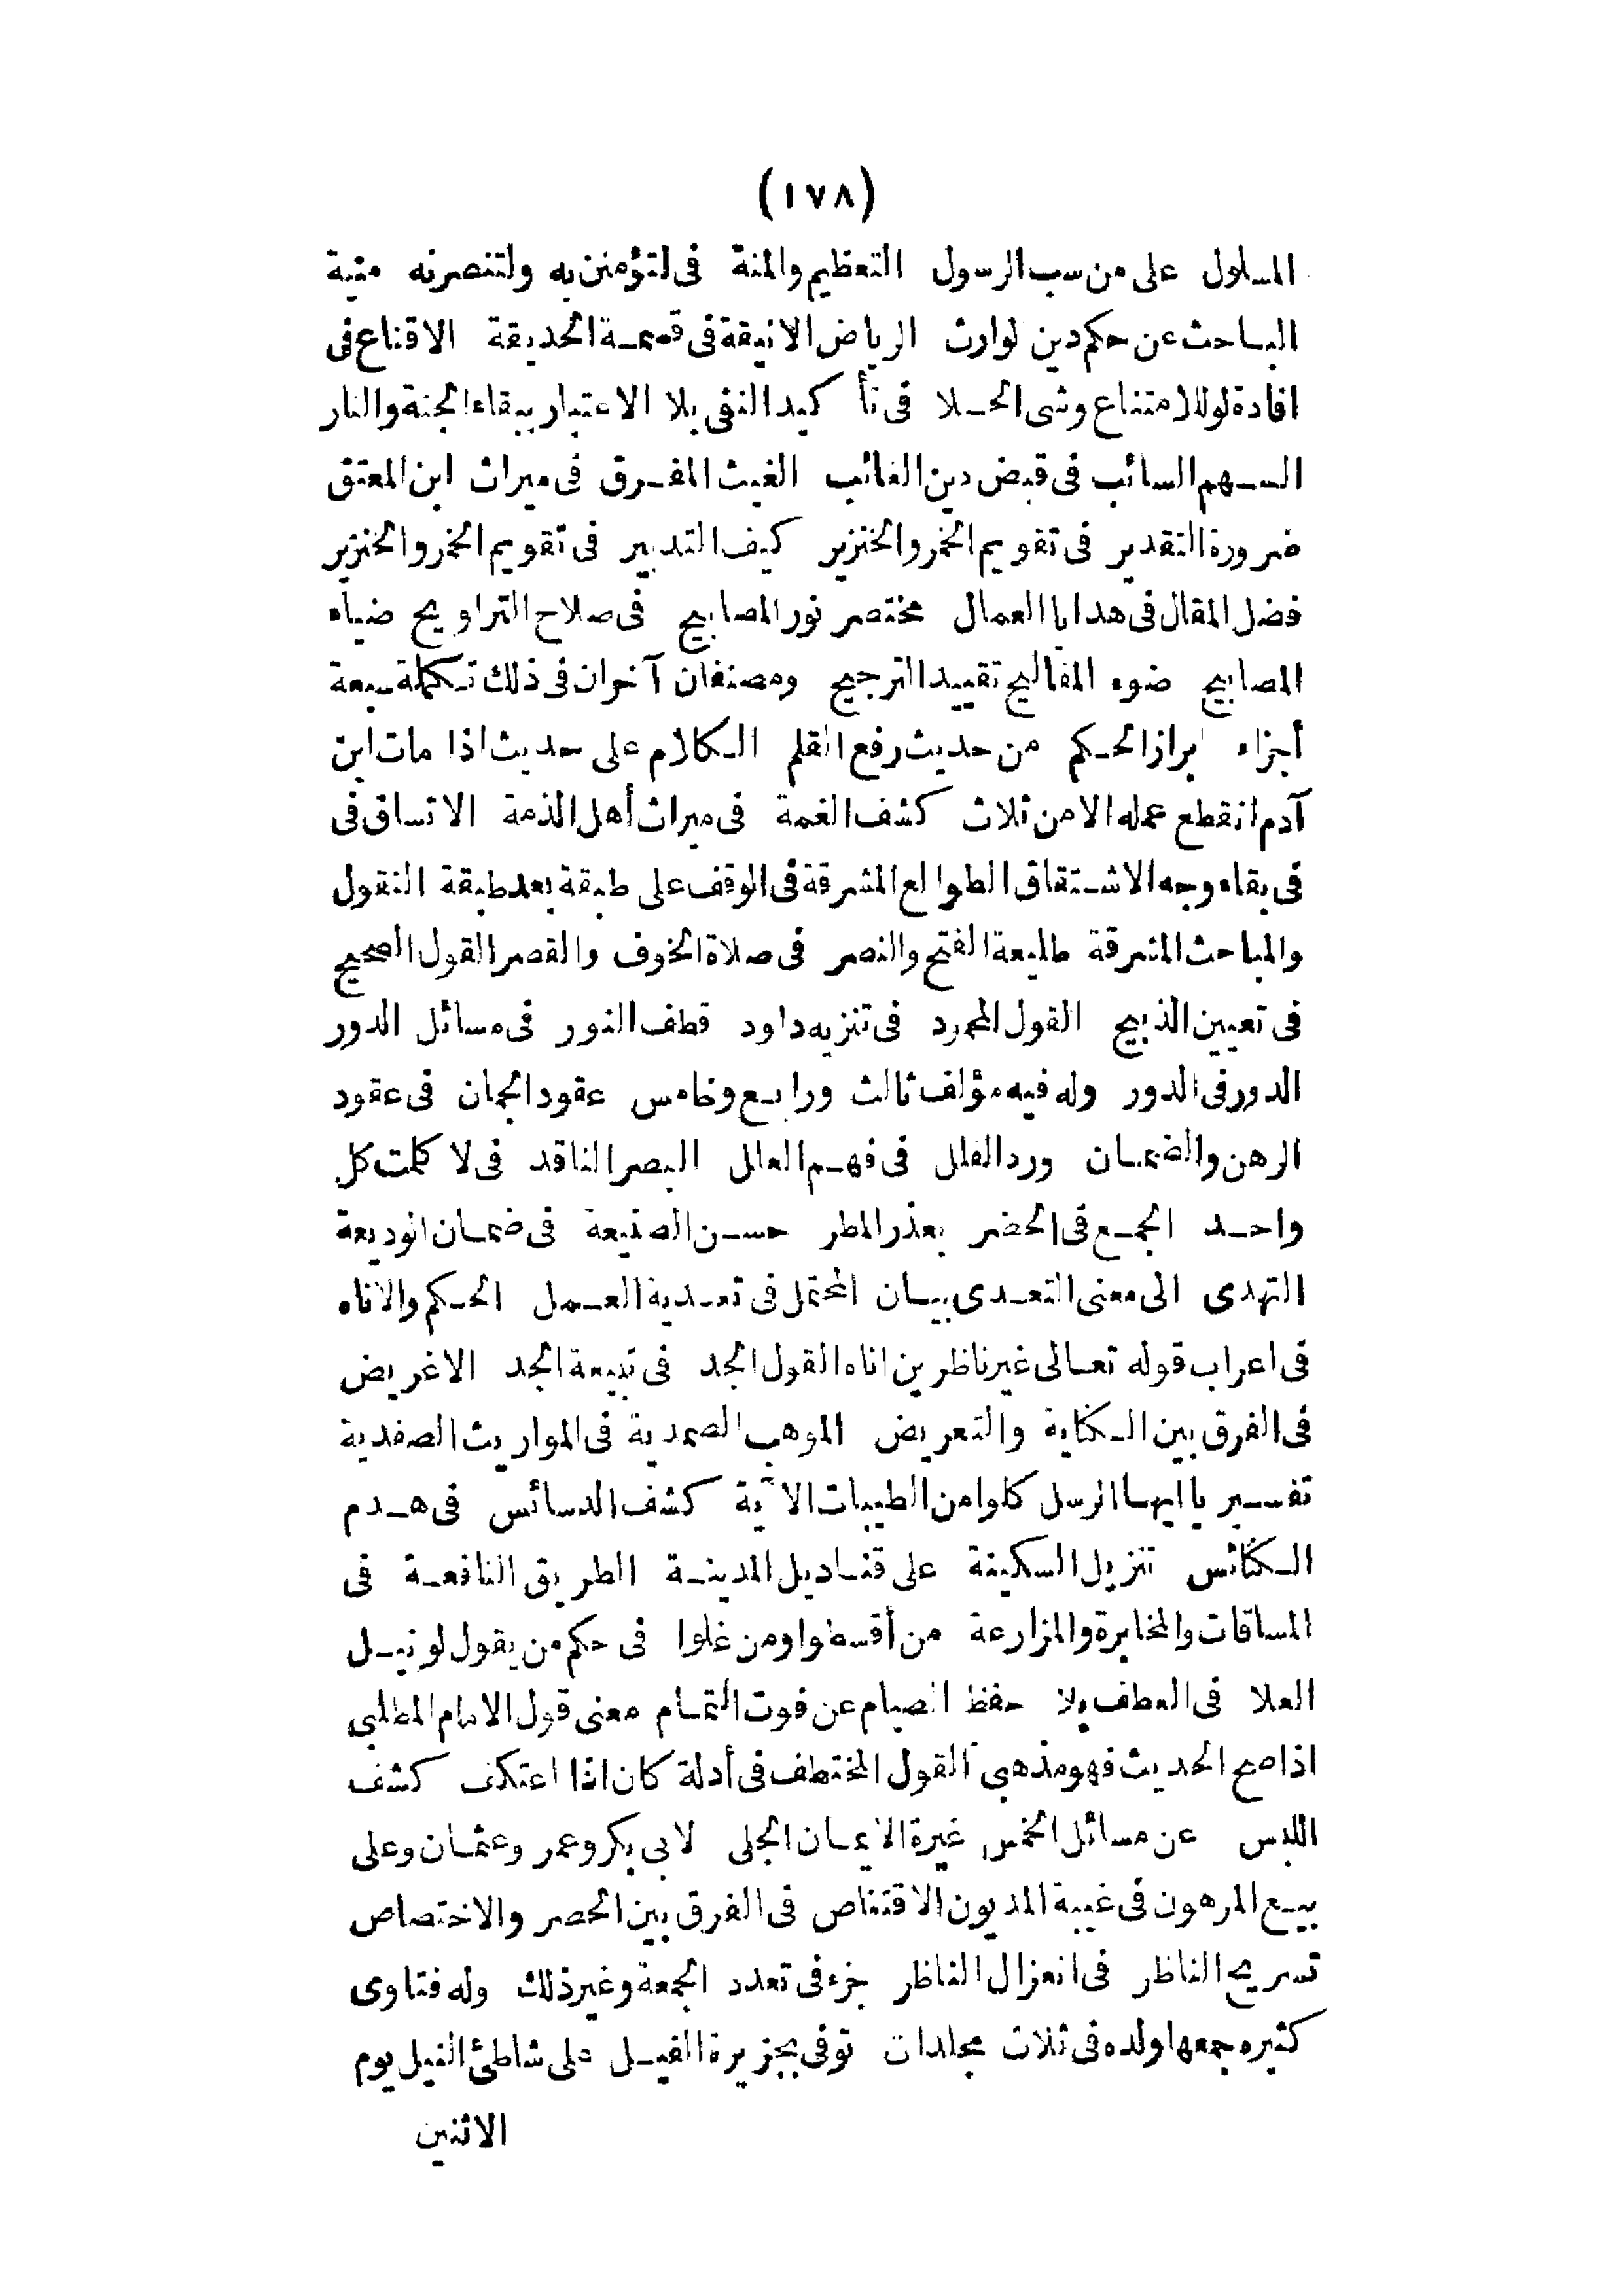 (١٧٨)
المسلول على من سب الرسول التعظيم والمنة فى لتؤمنن به ولتنصرنه منية
الباحث عن حكم دين لوارث الرياض الانيقة فى قسمة الحديقة الاقناع فى
افادة لو للامتناع وشى الحلا فى تأ كيد النفى بلا الاعتبار ببقاء الجنة والنار
السهم السائب فى قبض دين الغائب الغيث المفرق فى ميراث ابن المعتق
ضرورة التقدير فى تقويم الخمر والخنزير كيف التدبير فى تقويم الخمر والخنزير
فضل المقال فى هدايا العمال مختصر نور المصابيح فى صلاح التراويح ضياء
المصابيح ضوء المفاليح تقييد الترجيح ومصنفان آخران فى ذلك تكملة سبعة
أجزاء ابراز الحكم من حديث رفع القلم الكلام على حديث اذا مات ابن
آدم انقطع عمله الا من ثلاث كشف الغمة فى ميراث أهل الذمة الاتساق فى
فى بقاء وجه الاشتقاق الطوالع المشرقة فى الوقف على طبقة بعد طبقة النقول
والمباحث المشرقة طليعة الفتح والنصر فى صلاة الخوف والقصر القول الصحيح
فى تعيين الذبيح القول المحمود فى تنزيه داود قطف النور فى مسائل الدور
الدور فى الدور وله فيه مؤلف ثالث ورابع وخامس عقود الجمان فى عقود
الرهن والضمان ورد الغلل فى فهم العلل البصر الناقد فى لا كلمت كل
واحد الجمع فى الحضر بعذر المطر حسن الصنيعة فى ضمان الوديعة
التهدى الى معنى التعدى بيان المحتمل فى تعدية العمل الحكم والاناه
فى اعراب قوله تعالى غير ناظرين اناه القول الجد فى تبيعة الجد الاغريض
فى الفرق بين الكناية والتعريض الموهب الصمدية فى المواريث الصفدية
تفسير يا ايها الرسل كلوا من الطيبات الآية كشف الدسائس فى هدم
الكنائس تنزيل السكينة على قناديل المدينة الطريق النافعة فى
المساقات والمخابرة والمزارعة من أقسطوا ومن غلوا فى حكم من يقول لو نيل
العلا فى العطف بلا حفظ الصيام عن فوت التمام معنى قول الامام المطلبى
اذا صح الحديث فهو مذهبى القول المختطف فى أدلة كان اذا اعتكف كشف
اللبس عن مسائل الخمس غيرة الايمان الجلى لابى بكر وعمر وعثمان وعلى
بيع المرهون فى غيبة المديون الاقتناص فى الفرق بين الحصر والاختصاص
تسريح الناظر فى انعزال الناظر جزء فى تعدد الجمعة وغير ذلك وله فتاوى
كثيره جمعها ولده فى ثلاث مجلدات توفى بجزيرة الفيل على شاطئ النيل يوم
الاثنين